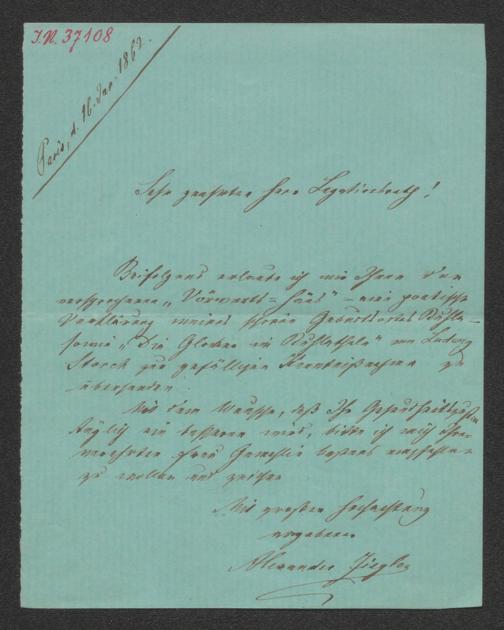 I.N. 37108
Paris, d. 16. Jan. 1862.
Sehr geehrter Herr Legationsrath!
Beifolgend erlaube ich mir Ihnen den
versprochenen „Vorwärts=
Verklärung meines Geburtsortes Ruhla –
sowie „Die Glocken in Ruhla von Ludwig
Storch zur gefälligen Kenntnißnahme zu
übersenden.
Mit dem Wunsche, daß Ihr Gesundheitszustand
täglich ein besserer wird, bitte ich mich Ihrer
verehrten Frau Gemahlin bestens empfehlen
zu wollen und zeichne
Mit großer Hochachtung
ergebener
Alexander Ziegler